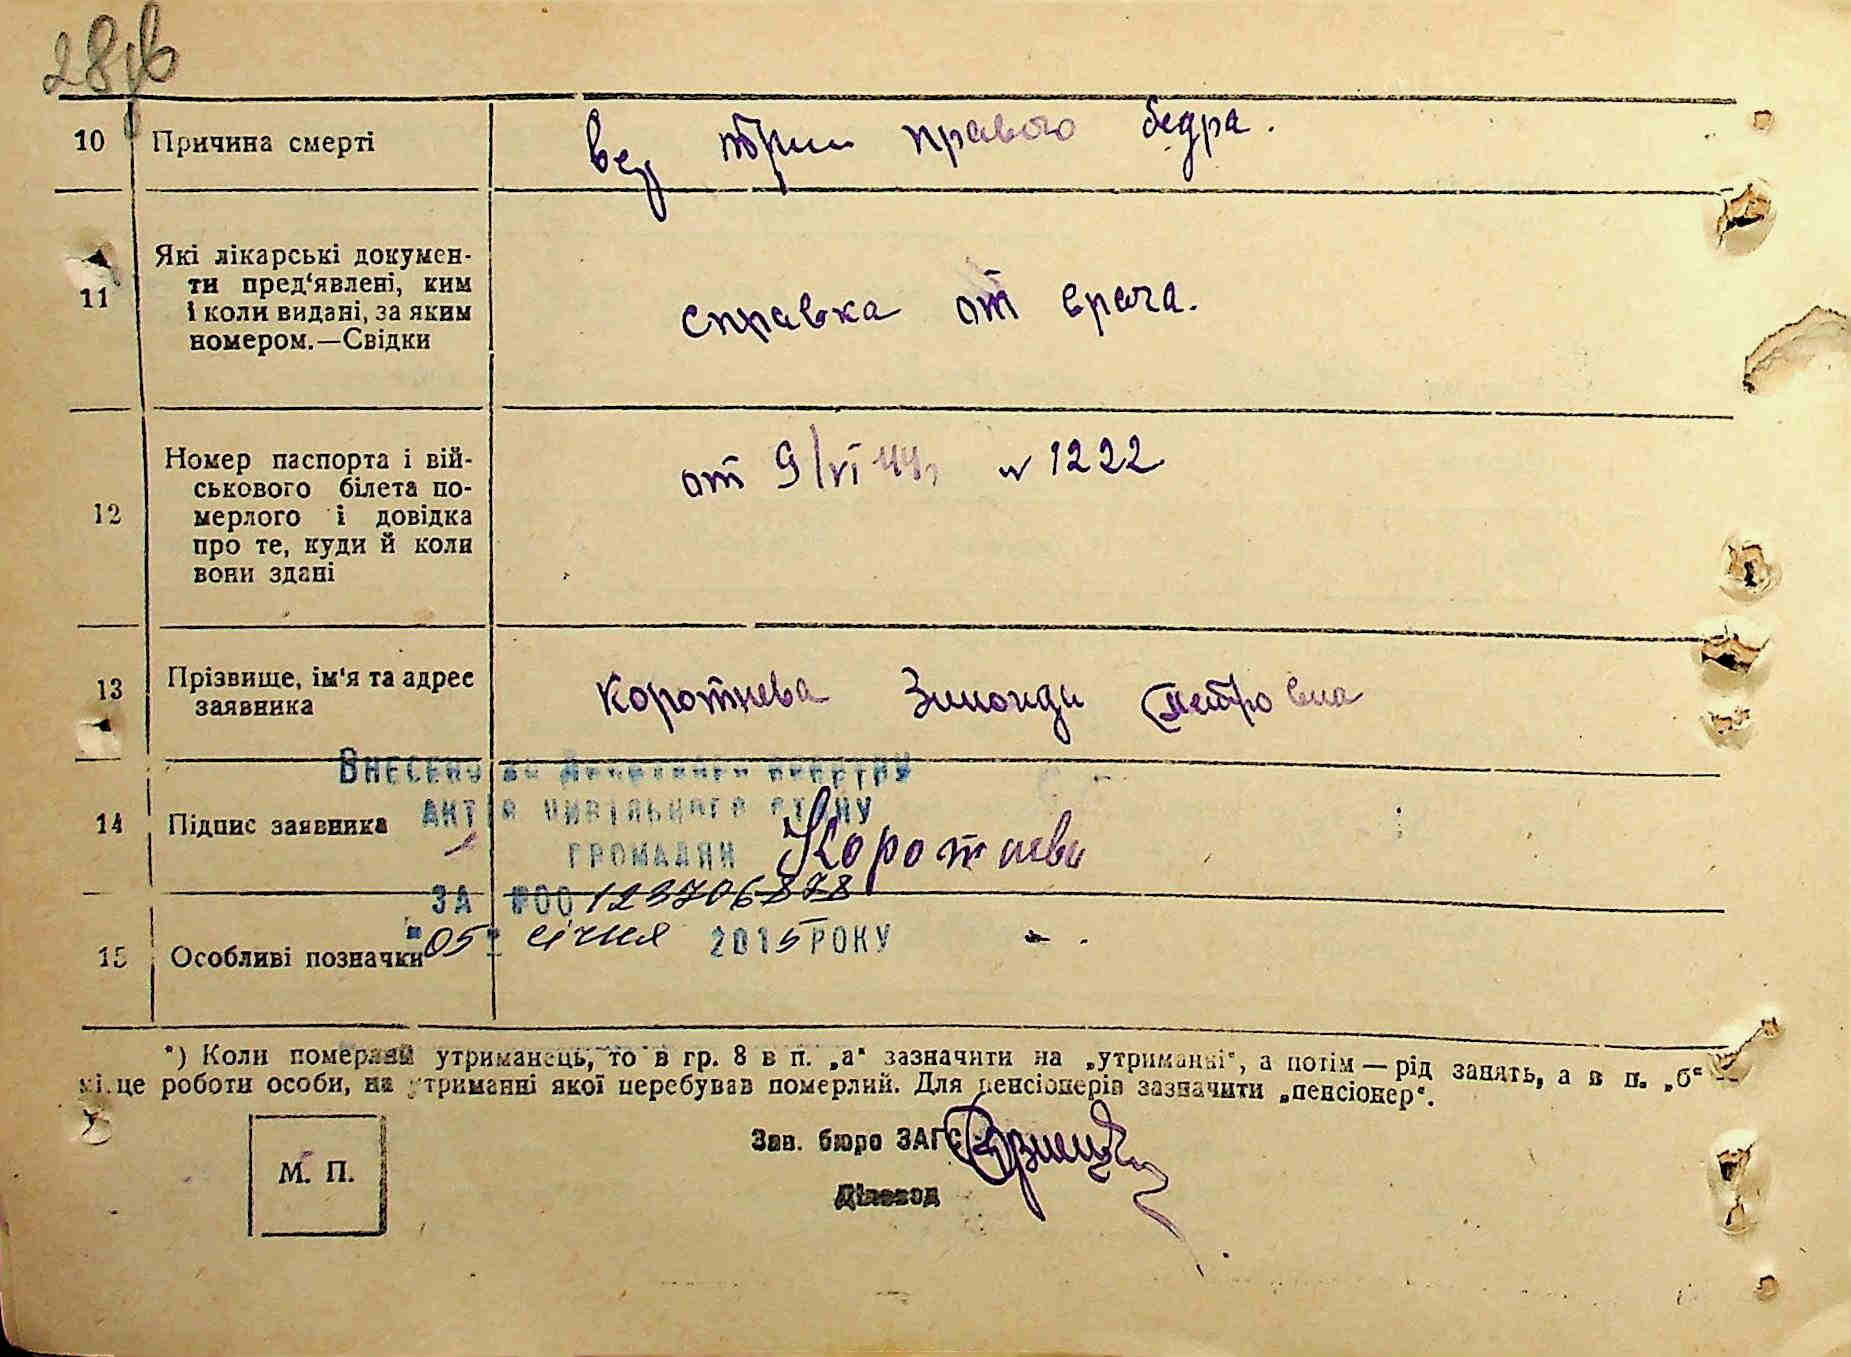 10 Причина смерті
правого бедра.
11 Які лікарські докумен-
ти пред'явлені, ким
і коли видані, за яким
номером.—Свідки
справка от врача.
12 Номер паспорта і вій-
ськового білета по-
мерлого і довідка
про те, куди й коли
вони здані
от 9/VI 44, № 1222
13 Прізвище, ім'я та адрес
заявника
Коротнева Зинаида Петровна
Внесено до Державного реєстру
актів цивільного стану
громадян
14 Підпис заявника
Коротнева
за №00123706878
"05" січня 2015 року
15 Особливі позначки
*) Коли померлий утриманець, то в гр. 8 в п. „а“ зазначити на „утриманні“, а потім — рід занять, а в п. „б“ —
місце роботи особи, на утриманні якої перебував померлий. Для пенсіонерів зазначити „пенсіонер“.
М. П.
Зав. бюро ЗАГС
Діловод